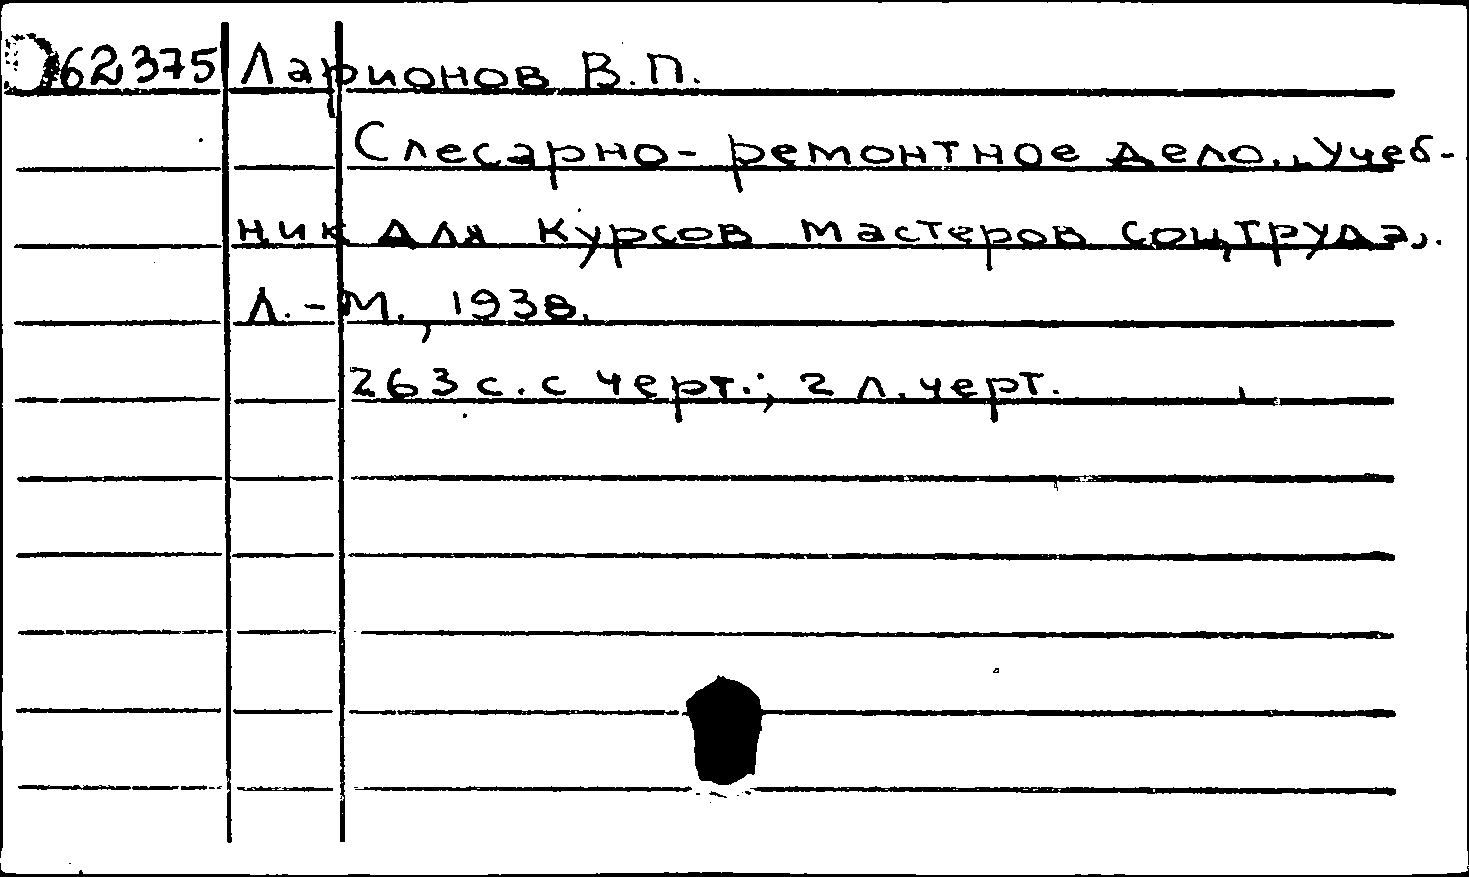 62375 Ларионов В.П.
Слесарно-ремонтное дело. Учеб-
ник для курсов мастеров соцтруда.
Л.-М., 1938.
263 с. с черт.; 2 л. черт.